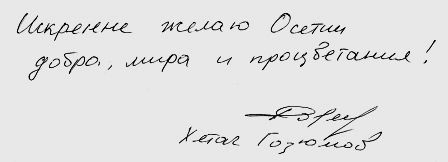 Искренне желаю Осетии
добра, мира и процветания!
Хетаг Гозюмов